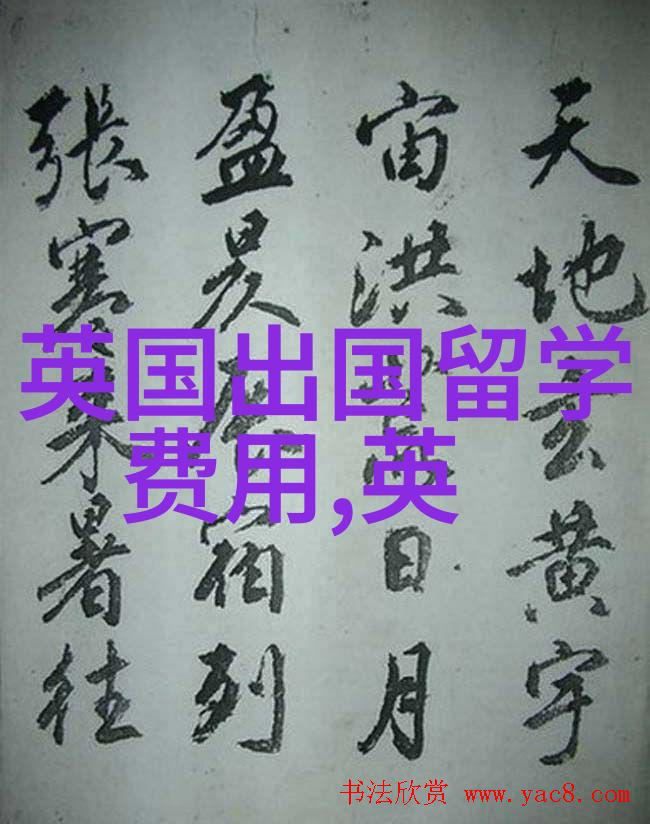 天地玄黄宇
宙洪荒日月
盈昃辰宿列
張寒来暑往
英国出国留学
费用,英
书法欣赏 www.yac8.com